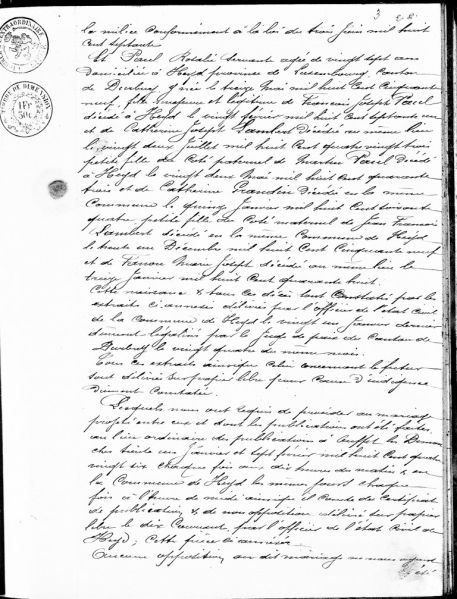 3
la milice conformément à la loi du trois juin mil huit
cent septante
Et Paul Rosalie servante agée de vingt sept ans
domiciliée à Heyd province de Luxembourg, canton
de Durbuy, y née le treize Mai mil huit cent cinquante
neuf, fille majeure et légitime de François Joseph
décédé à Heyd le vingt février mil huit cent septante un
et de Catherine Joseph Lambert décédée au même lieu
le vingt deux Juillet mil huit cent quatre vingt trois
petite fille du côté paternel de Martin décédé
à Heyd le vingt deux Mai mil huit cent quarante
trois et de Catherine décédée en la même
commune le quinze Janvier mil huit cent soixante
quatre, petite fille du côté maternel de Jean François
Lambert décédé en la même Commune de Heyd
le trente un Décembre mil huit cent cinquante neuf
et de Marie Joseph décédée au même lieu le
treize Janvier mil huit cent quarante huit.
Cette naissance & tous ces décès sont constatés par les
extraits ci-annexés délivrés par l'officier de l'état civil
de la commune de Heyd le vingt un Janvier dernier
dûment légalisés par le Juge de paix du Canton de
Durbuy le vingt quatre du même mois.
Tous ces extraits ainsi que celui concernant le futur
sont délivrés sur papier libre pour cause d'indigence
dûment constatée.
Lesquels nous ont requis de procéder au mariage
projeté entre eux et dont les publications ont été faites
au lieu ordinaire de publications à les Diman
ches trente un Janvier et sept février mil huit cent quatre
vingt six chaque fois aux dix heures du matin & en
la Commune de Heyd les mêmes jours chaque
fois à l'heure de midi ainsi qu'il conste du certificat
de publication & de non opposition délivré sur papier
libre le dix courant, par l'officier de l'état civil de
Heyd; cette pièce ci-annexée
Aucune opposition au dit mariage ne nous ayant
été